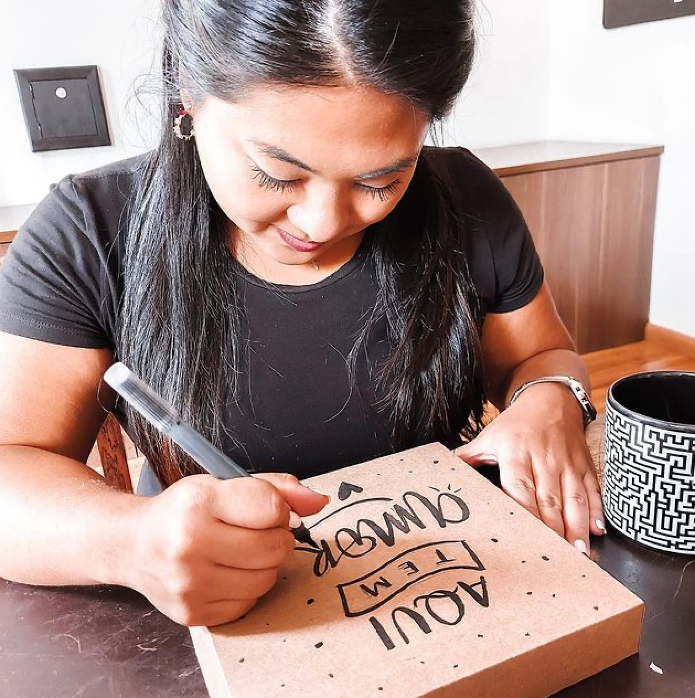 AQUI
TEM
AMOR